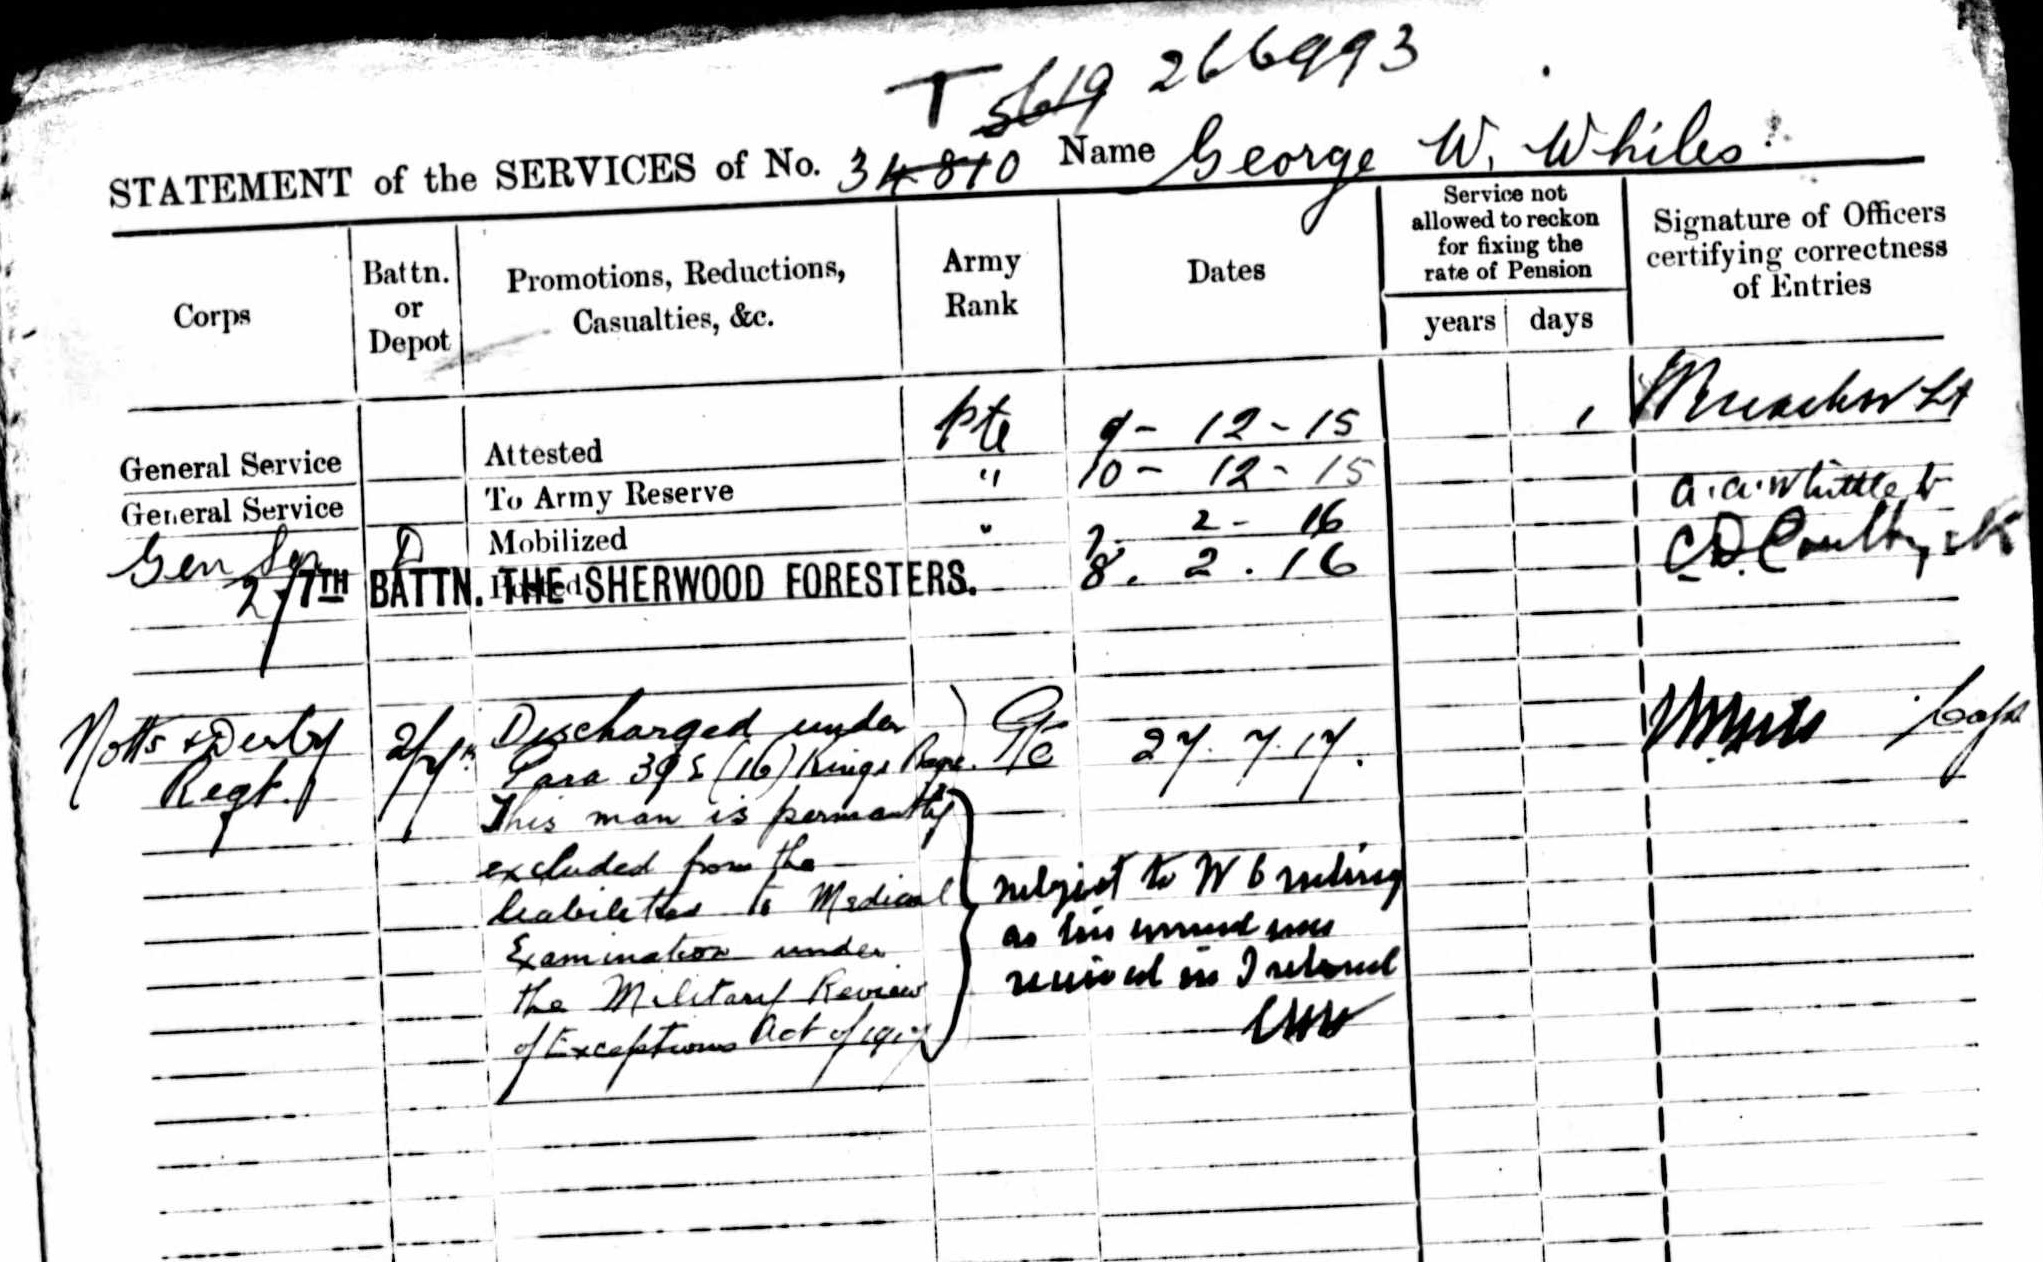 T 5619 266993
STATEMENT of the SERVICES of No. 34810 Name George W. Whiles
Corps
Battn.
or
Depot
Promotions, Reductions,
Casualties, &c.
Army
Rank
Dates
Service not
allowed to reckon
for fixing the
rate of Pension
years days
Signature of Officers
certifying correctness
of Entries
General Service Attested Pte 9 - 12 - 15 Lt
General Service To Army Reserve " 10 - 12 - 15 A. A. Whittle Lt
Gen Ser D Mobilized " 7. 2 - 16
2/7TH BATTN. THE SHERWOOD FORESTERS. Posted 8. 2. 16
Notts & Derby
Regt.
2/7th
Discharged under
Para 392 (16) Kings Regs.
Pte 27. 7. 17. Capt
This man is permantly
excluded from the
liabilities to Medical
Examination under
the Military Review
of Exceptions Act of 1917
subject to W O ruling
as his wound was
received in Ireland